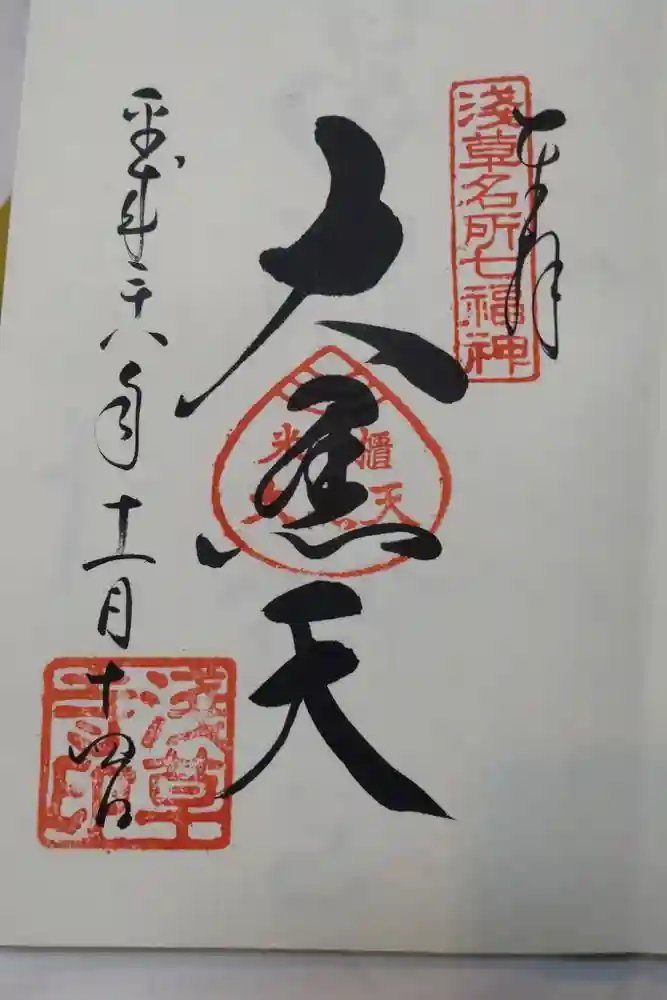 奉拝
淺草名所七福神
大黒天
米櫃
平成二十八年十一月十四日
淺草